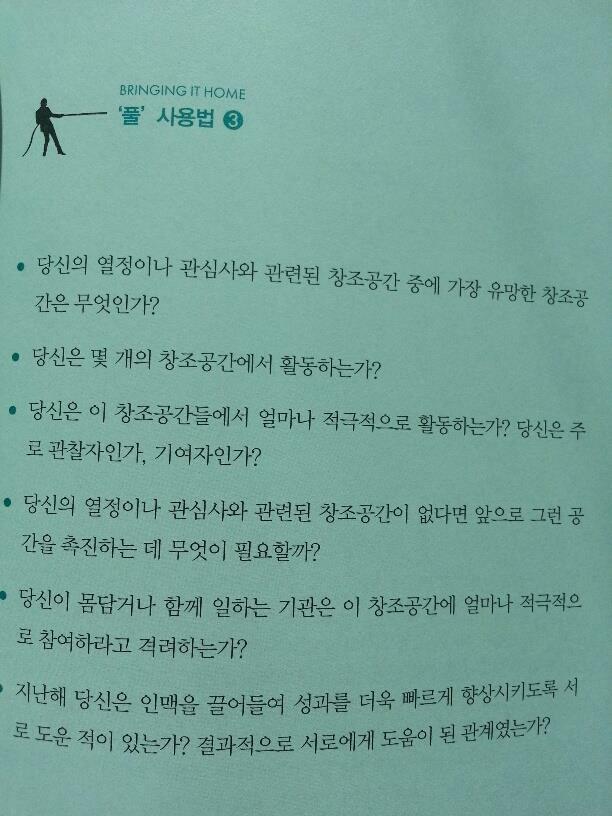 BRINGING IT HOME
‘풀’ 사용법 ❸
• 당신의 열정이나 관심사와 관련된 창조공간 중에 가장 유망한 창조공
간은 무엇인가?
• 당신은 몇 개의 창조공간에서 활동하는가?
• 당신은 이 창조공간들에서 얼마나 적극적으로 활동하는가? 당신은 주
로 관찰자인가, 기여자인가?
• 당신의 열정이나 관심사와 관련된 창조공간이 없다면 앞으로 그런 공
간을 촉진하는 데 무엇이 필요할까?
• 당신이 몸담거나 함께 일하는 기관은 이 창조공간에 얼마나 적극적으
로 참여하라고 격려하는가?
• 지난해 당신은 인맥을 끌어들여 성과를 더욱 빠르게 향상시키도록 서
로 도운 적이 있는가? 결과적으로 서로에게 도움이 된 관계였는가?